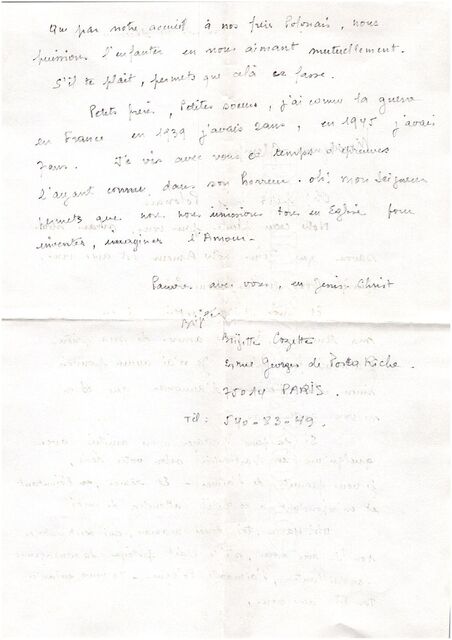 Que par notre accueil à nos frères Polonais, nous
puissions l'enfanter en nous aimant mutuellement.
S'il te plait, permets que celà ce fasse.
Petits frères, Petites soeurs, j'ai connu la guerre
en France en 1939 j'avais 2 ans, en 1945 j'avais
7 ans. Je vis avec vous ce temps d'épreuves
l'ayant connue dans son horreur. oh! mon Seigneur
permets que nous nous unissions tous en Eglise pour
inventer, imaginer l'Amour.
Pauvre avec vous, en Jésus Christ
Brigitte
Brigitte Cozette
rue Georges de Porto Riche.
75014 PARIS
Tél: 540-83-49.